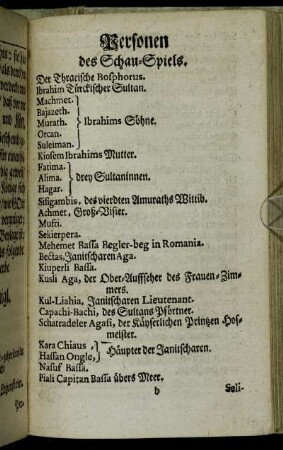 Personen
des Schau-Spiels.
Der Thracische Bosphorus.
Ibrahim Türckischer Sultan.
Machmet.
Bajazeth.
Murath.
Orcan.
Suleiman.
Ibrahims Söhne.
Kiosem Ibrahims Mutter.
Fatima.
Alima.
Hagar.
drey Sultaninnen.
Sisigambis, des vierdten Amuraths Wittib.
Achmet, Groß-Visier.
Mufti.
Sekierpera.
Mehemet Bassa Begler-beg in Romania.
Bectas, Janitscharen Aga.
Kiuperli Bassa.
Kusli Aga, der Ober-Auffseher des Frauen-Zim-
mers.
Kul-Liahia, Janitscharen Lieutenant.
Capachi-Bachi, des Sultans Pförtner.
Schatradeler Agasi, der Käyserlichen Printzen Hof-
meister.
Kara Chiaus,
Hassan Ongle,
Häupter der Janitscharen.
Nasuf Bassa,
Piali Capitan Bassa übers Meer.
b
Seli-